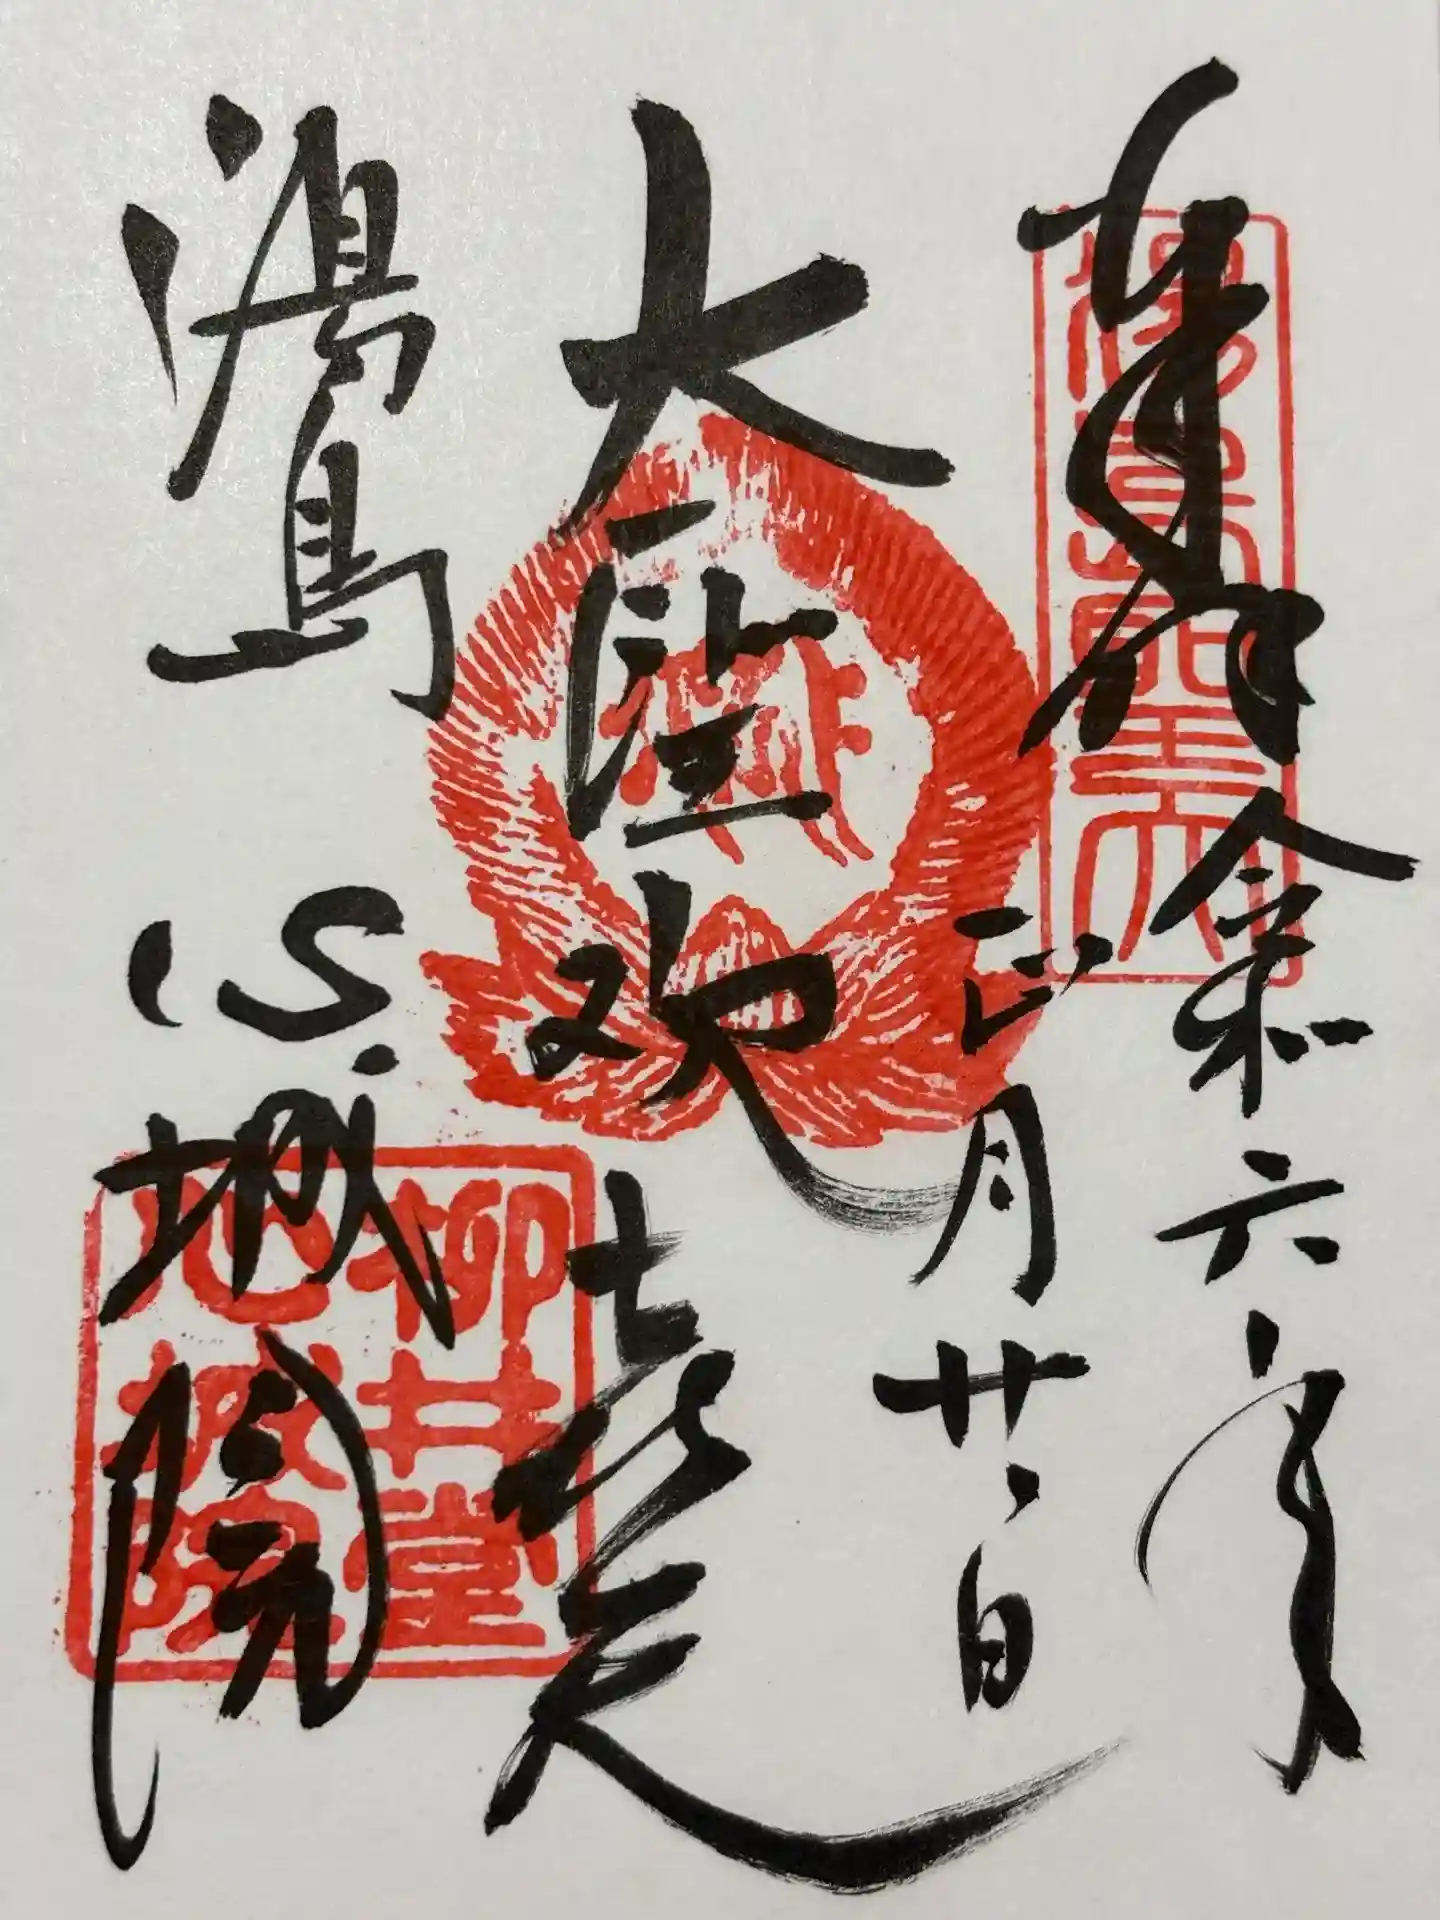 奉拝 令和六年
正月廿 日
大聖歓喜天
湯島 心城院
湯島聖天
柳井堂
心城院